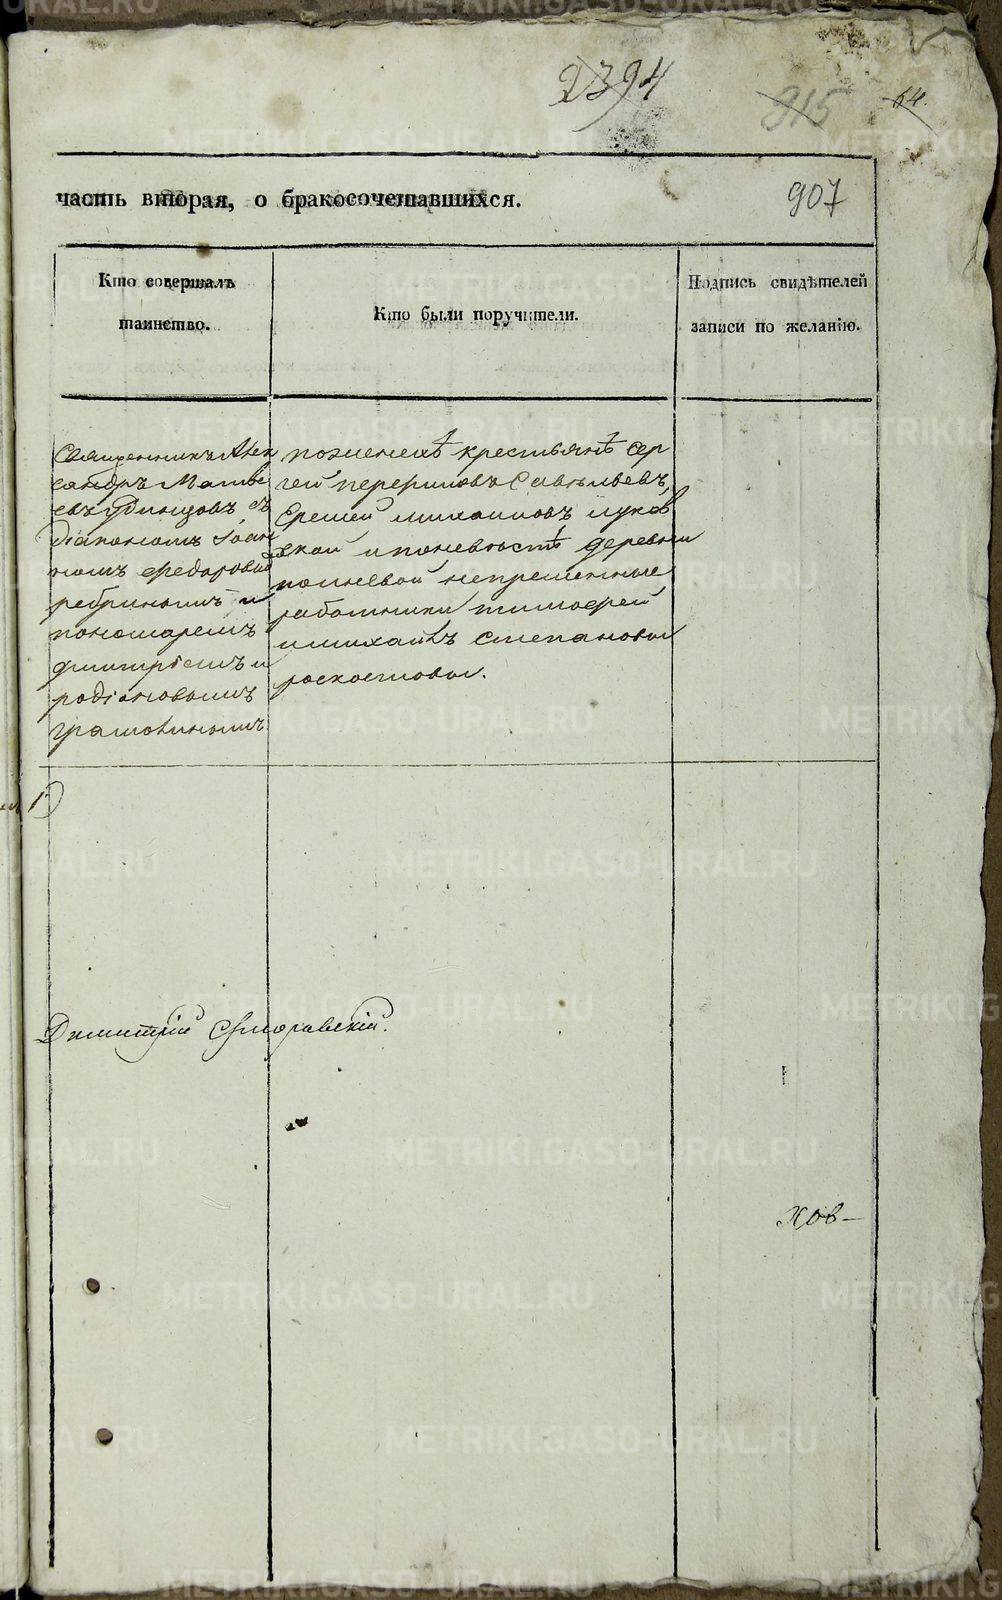 2394
915
64.
часть вторая, о бракосочетавшихся.
907
Кто совершалъ
таинство.
Кто были поручители.
Подпись свидѣтелей
записи по желанію.
Священникъ Алек
сандръ Матве
евъ Удинцовъ съ
діакономъ Іоан
номъ Федоровым
ребринымъ и
пономаремъ
димитріемъ и
родіоновымъ
грамовинымъ
по женихѣ крестьянѣ Сер
гей перфиловъ Савѣльевъ,
Еремей михаиловъ
и по невѣстѣ деревни
непременные
работники тимофей
и михаилъ степановы
роскостовы.
1)
Димитрій
хов-
METRIKI.GASO-URAL.RU